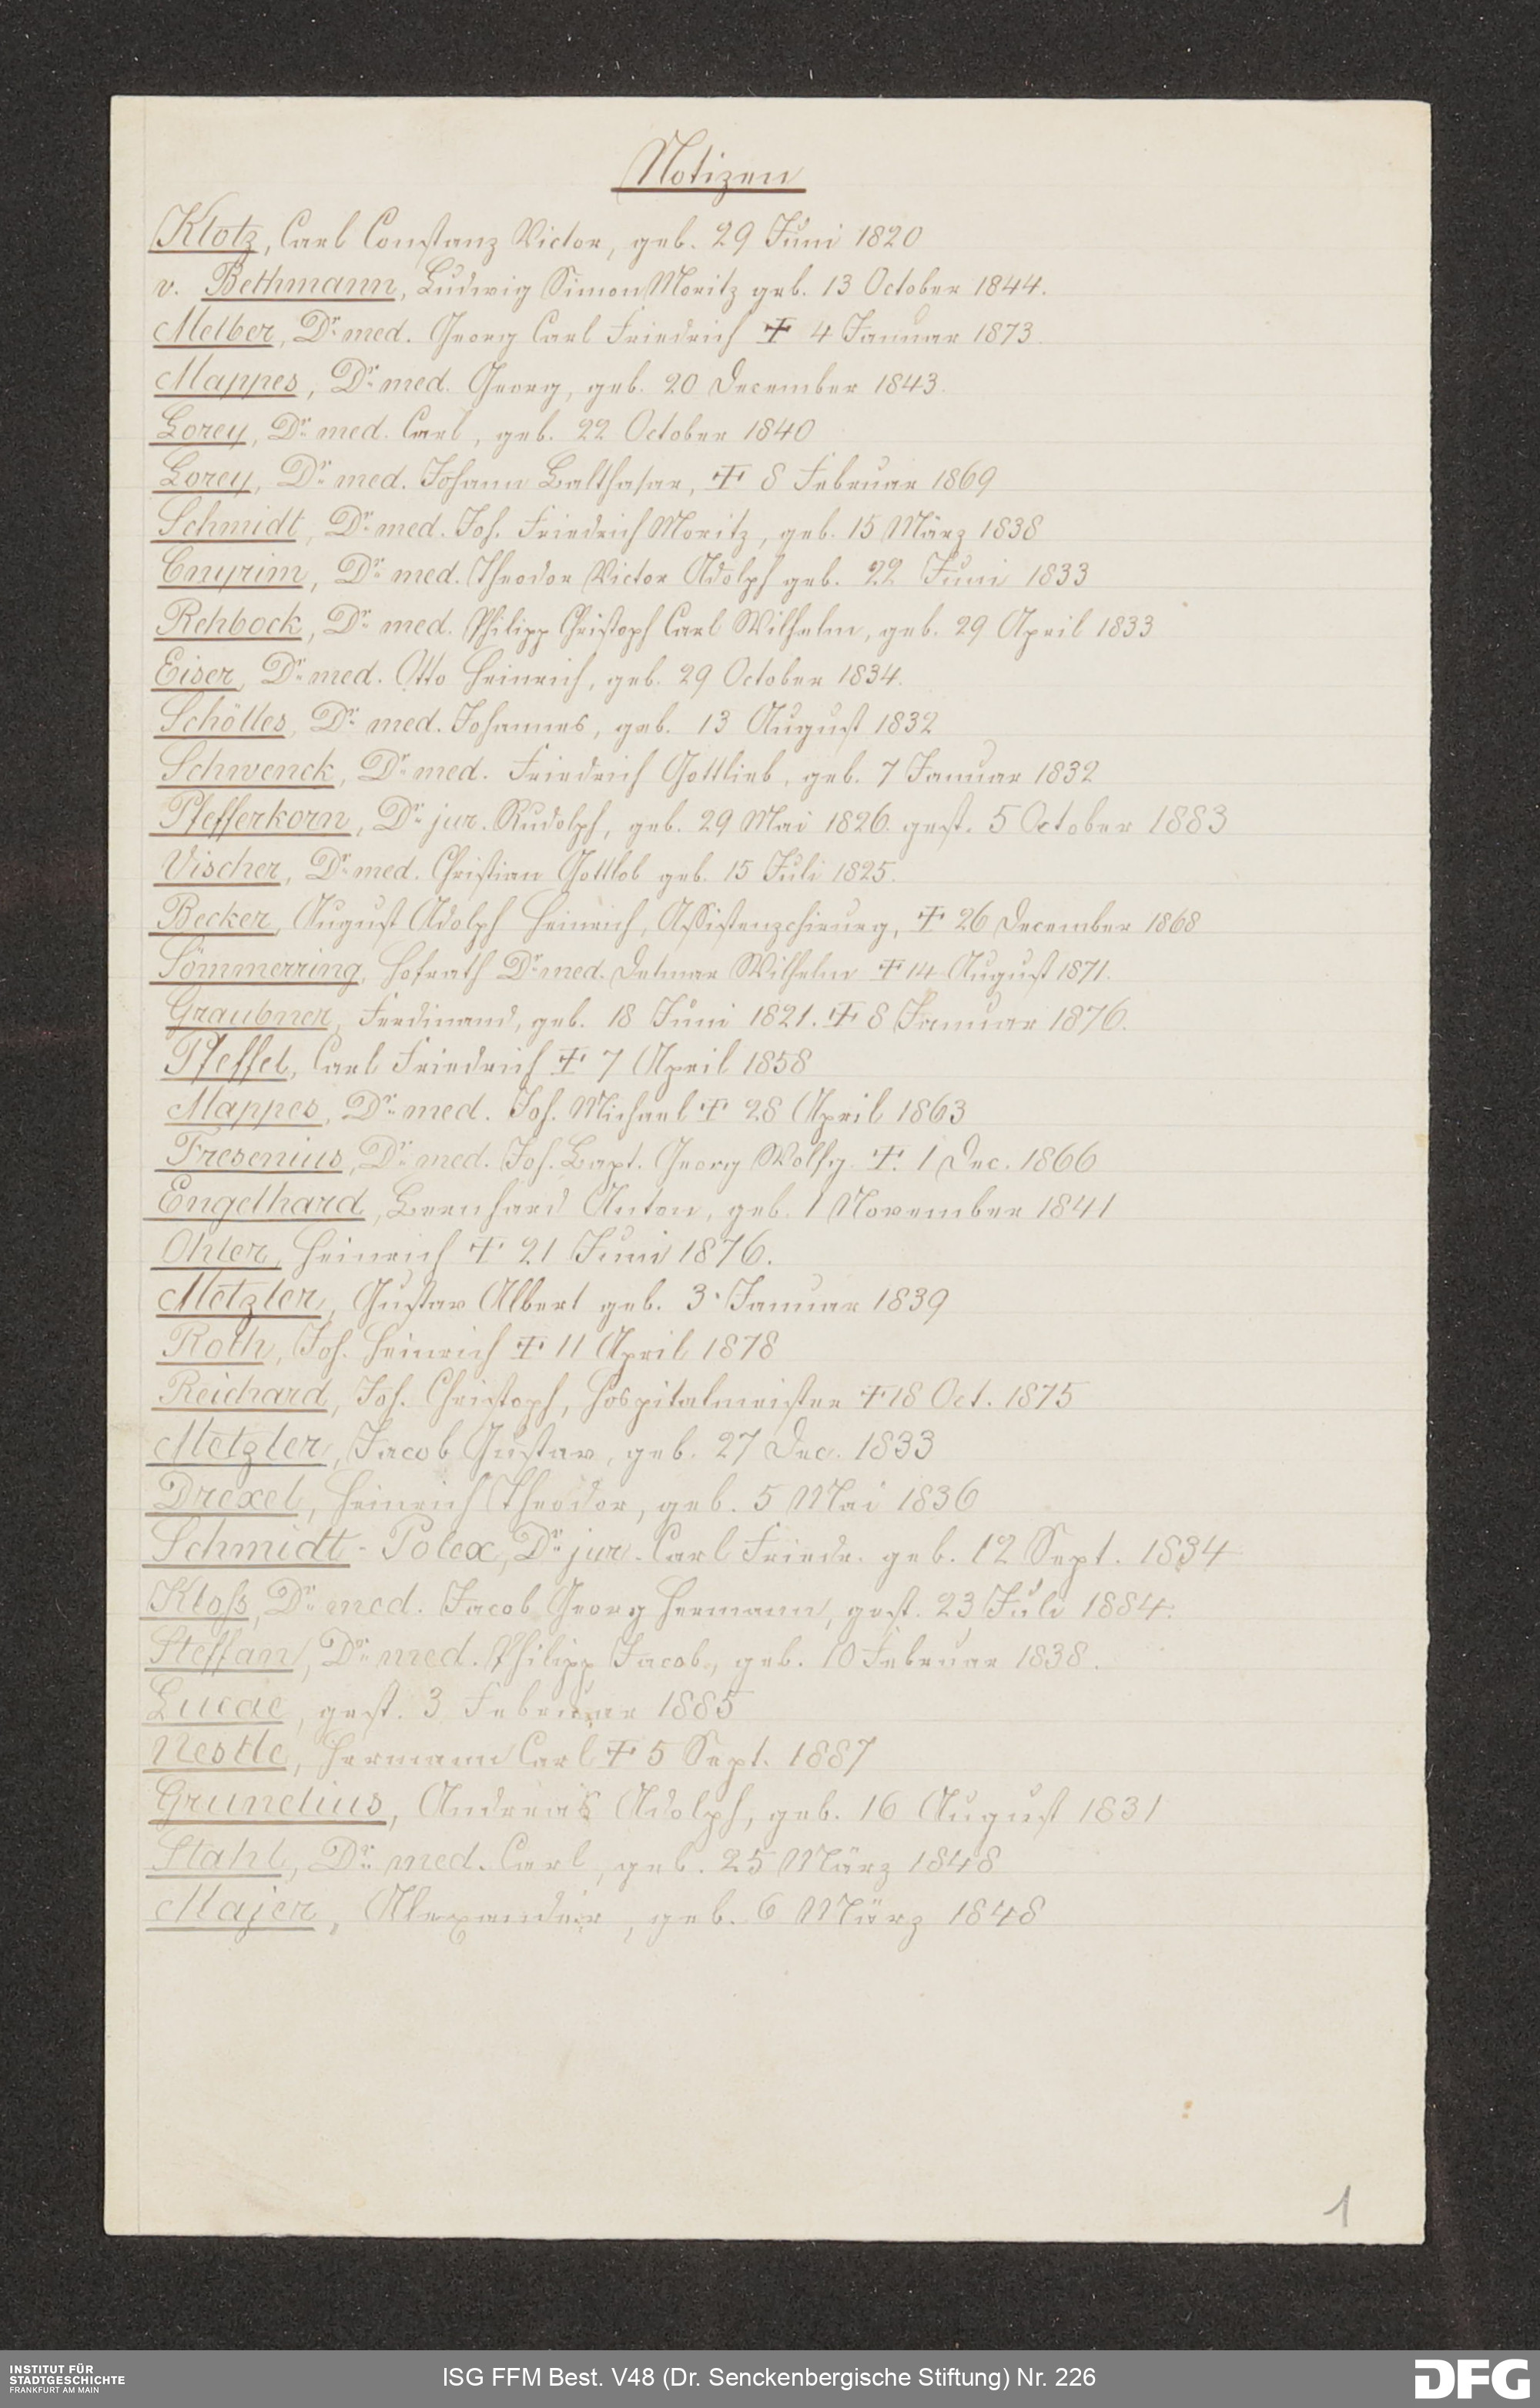 Notizen
Klotz, Carl Constanz Victor, geb. 29 Juni 1820
v. Bethmann, Ludwig Simon Moritz geb. 13 October 1844.
Melber, Dr. med. Georg Carl Friedrich ✝ 4 Januar 1873.
Mappes, Dr. med. Georg, geb. 20 December 1843.
Lorey, Dr. med. Carl, geb. 22 October 1840
Lorey, Dr. med. Johann Balthasar, ✝ 8 Februar 1869
Schmidt, Dr. med. Joh. Friedrich Moritz, geb. 15 März 1838
Cnyrim, Dr. med. Theodor Victor Adolph geb. 22 Juni 1833
Rehbock, Dr. med. Philipp Christoph Carl Wilhelm, geb. 29 April 1833
Eiser, Dr. med. Otto Heinrich, geb. 29 October 1834.
Schölles, Dr. med. Johannes, geb. 13 August 1832
Schwenck, Dr. med. Friedrich Gottlieb, geb. 7 Januar 1832
Pfefferkorn, Dr. jur. Rudolph, geb. 29 Mai 1826. gest. 5 October 1883
Vischer, Dr. med. Christian Gottlob geb. 15 Juli 1825.
Becker, August Adolph Heinrich, Assistenzchirurg, ✝ 26 December 1868
Sömmerring, Hofrath Dr. med. Detmar Wilhelm ✝ 14 August 1871.
Graubner, Ferdinand, geb. 18 Juni 1821. ✝ 8 Januar 1876.
Pfeffel, Carl Friedrich ✝ 7 April 1858
Mappes, Dr. med. Joh. Michael ✝ 28 April 1863
Fresenius, Dr. med. Joh. Bapt. Georg Wolfg. ✝. 1 Dec. 1866
Engelhard, Bernhard Anton, geb. 1 November 1841
Ohler, Heinrich ✝ 21 Juni 1876.
Metzler, Gustav Albert geb. 3. Januar 1839
Roth, Joh. Heinrich ✝ 11 April 1878
Reichard, Joh. Christoph, Hospitalmeister ✝ 18 Oct. 1875
Metzler, Jacob Gustav, geb. 27 Dec. 1833
Drexel, Heinrich Theodor, geb. 5 Mai 1836
Schmidt-Polex, Dr. jur. Carl Friedr. geb. 12 Sept. 1834
Kloß, Dr. med. Jacob Georg Hermann, gest. 23 Juli 1884.
Steffan, Dr. med. Philipp Jacob, geb. 10 Februar 1838.
Lucae, gest. 3 Februar 1885
Nestle, Hermann Carl ✝ 5 Sept. 1887
Grunelius, Andreas Adolph, geb. 16 August 1831
Stahl, Dr. med. Carl, geb. 25 März 1848
Majer, Alexander, geb. 6 März 1848
1
INSTITUT FÜR
STADTGESCHICHTE
FRANKFURT AM MAIN
ISG FFM Best. V48 (Dr. Senckenbergische Stiftung) Nr. 226
DFG